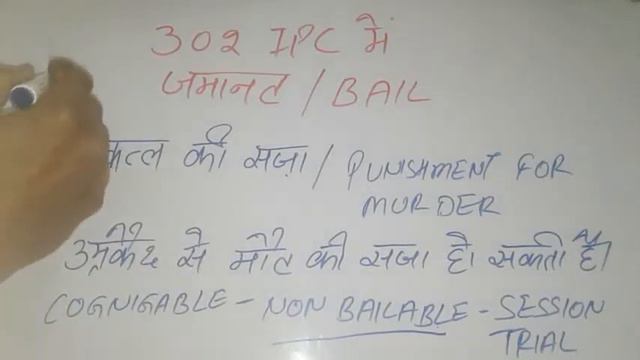 302 IPC में
जमानत / BAIL
कत्ल की सज़ा / PUNISHMENT FOR
MURDER
उम्रकैद से मौत की सजा हो सकती है।
COGNIGABLE - NON BAILABLE - SESSION
TRIAL